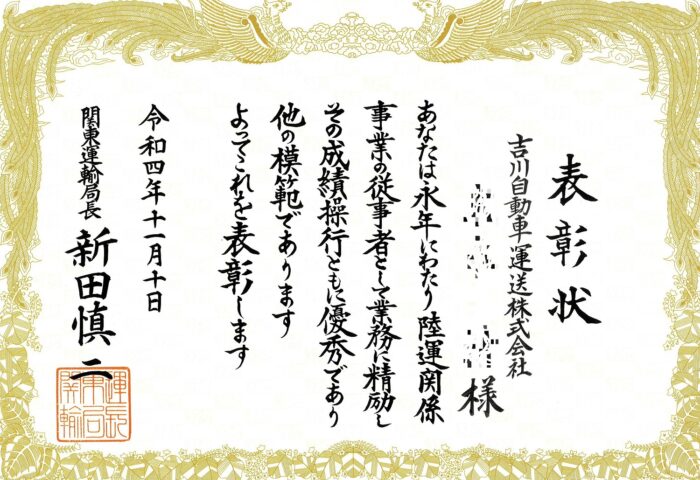 表彰状
吉川自動車運送株式会社
様
あなたは永年にわたり陸運関係
事業の従事者として業務に精励し
その成績操行ともに優秀であり
他の模範であります
よってこれを表彰します
令和四年十一月十日
関東運輸局長
新田慎二
関東運
輸局長